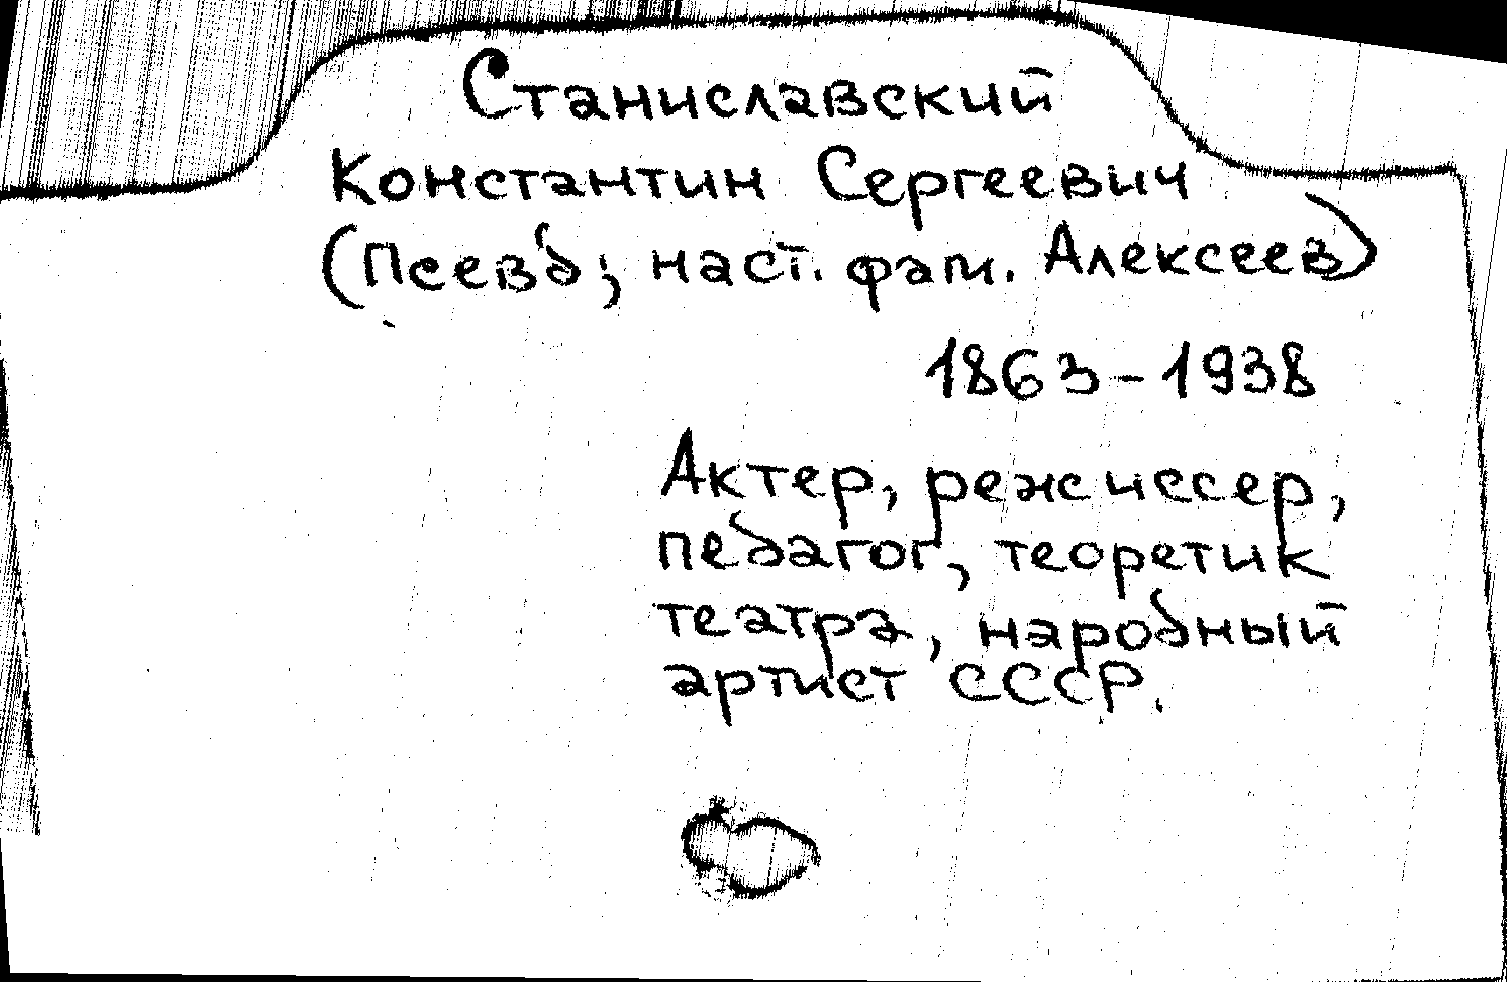 Станиславский
Константин Сергеевич
(Псевд; наст. фам. Алексеев)
1863-1938
Актер, режиссер,
педагог, теоретик
театра, народный
артист СССР.